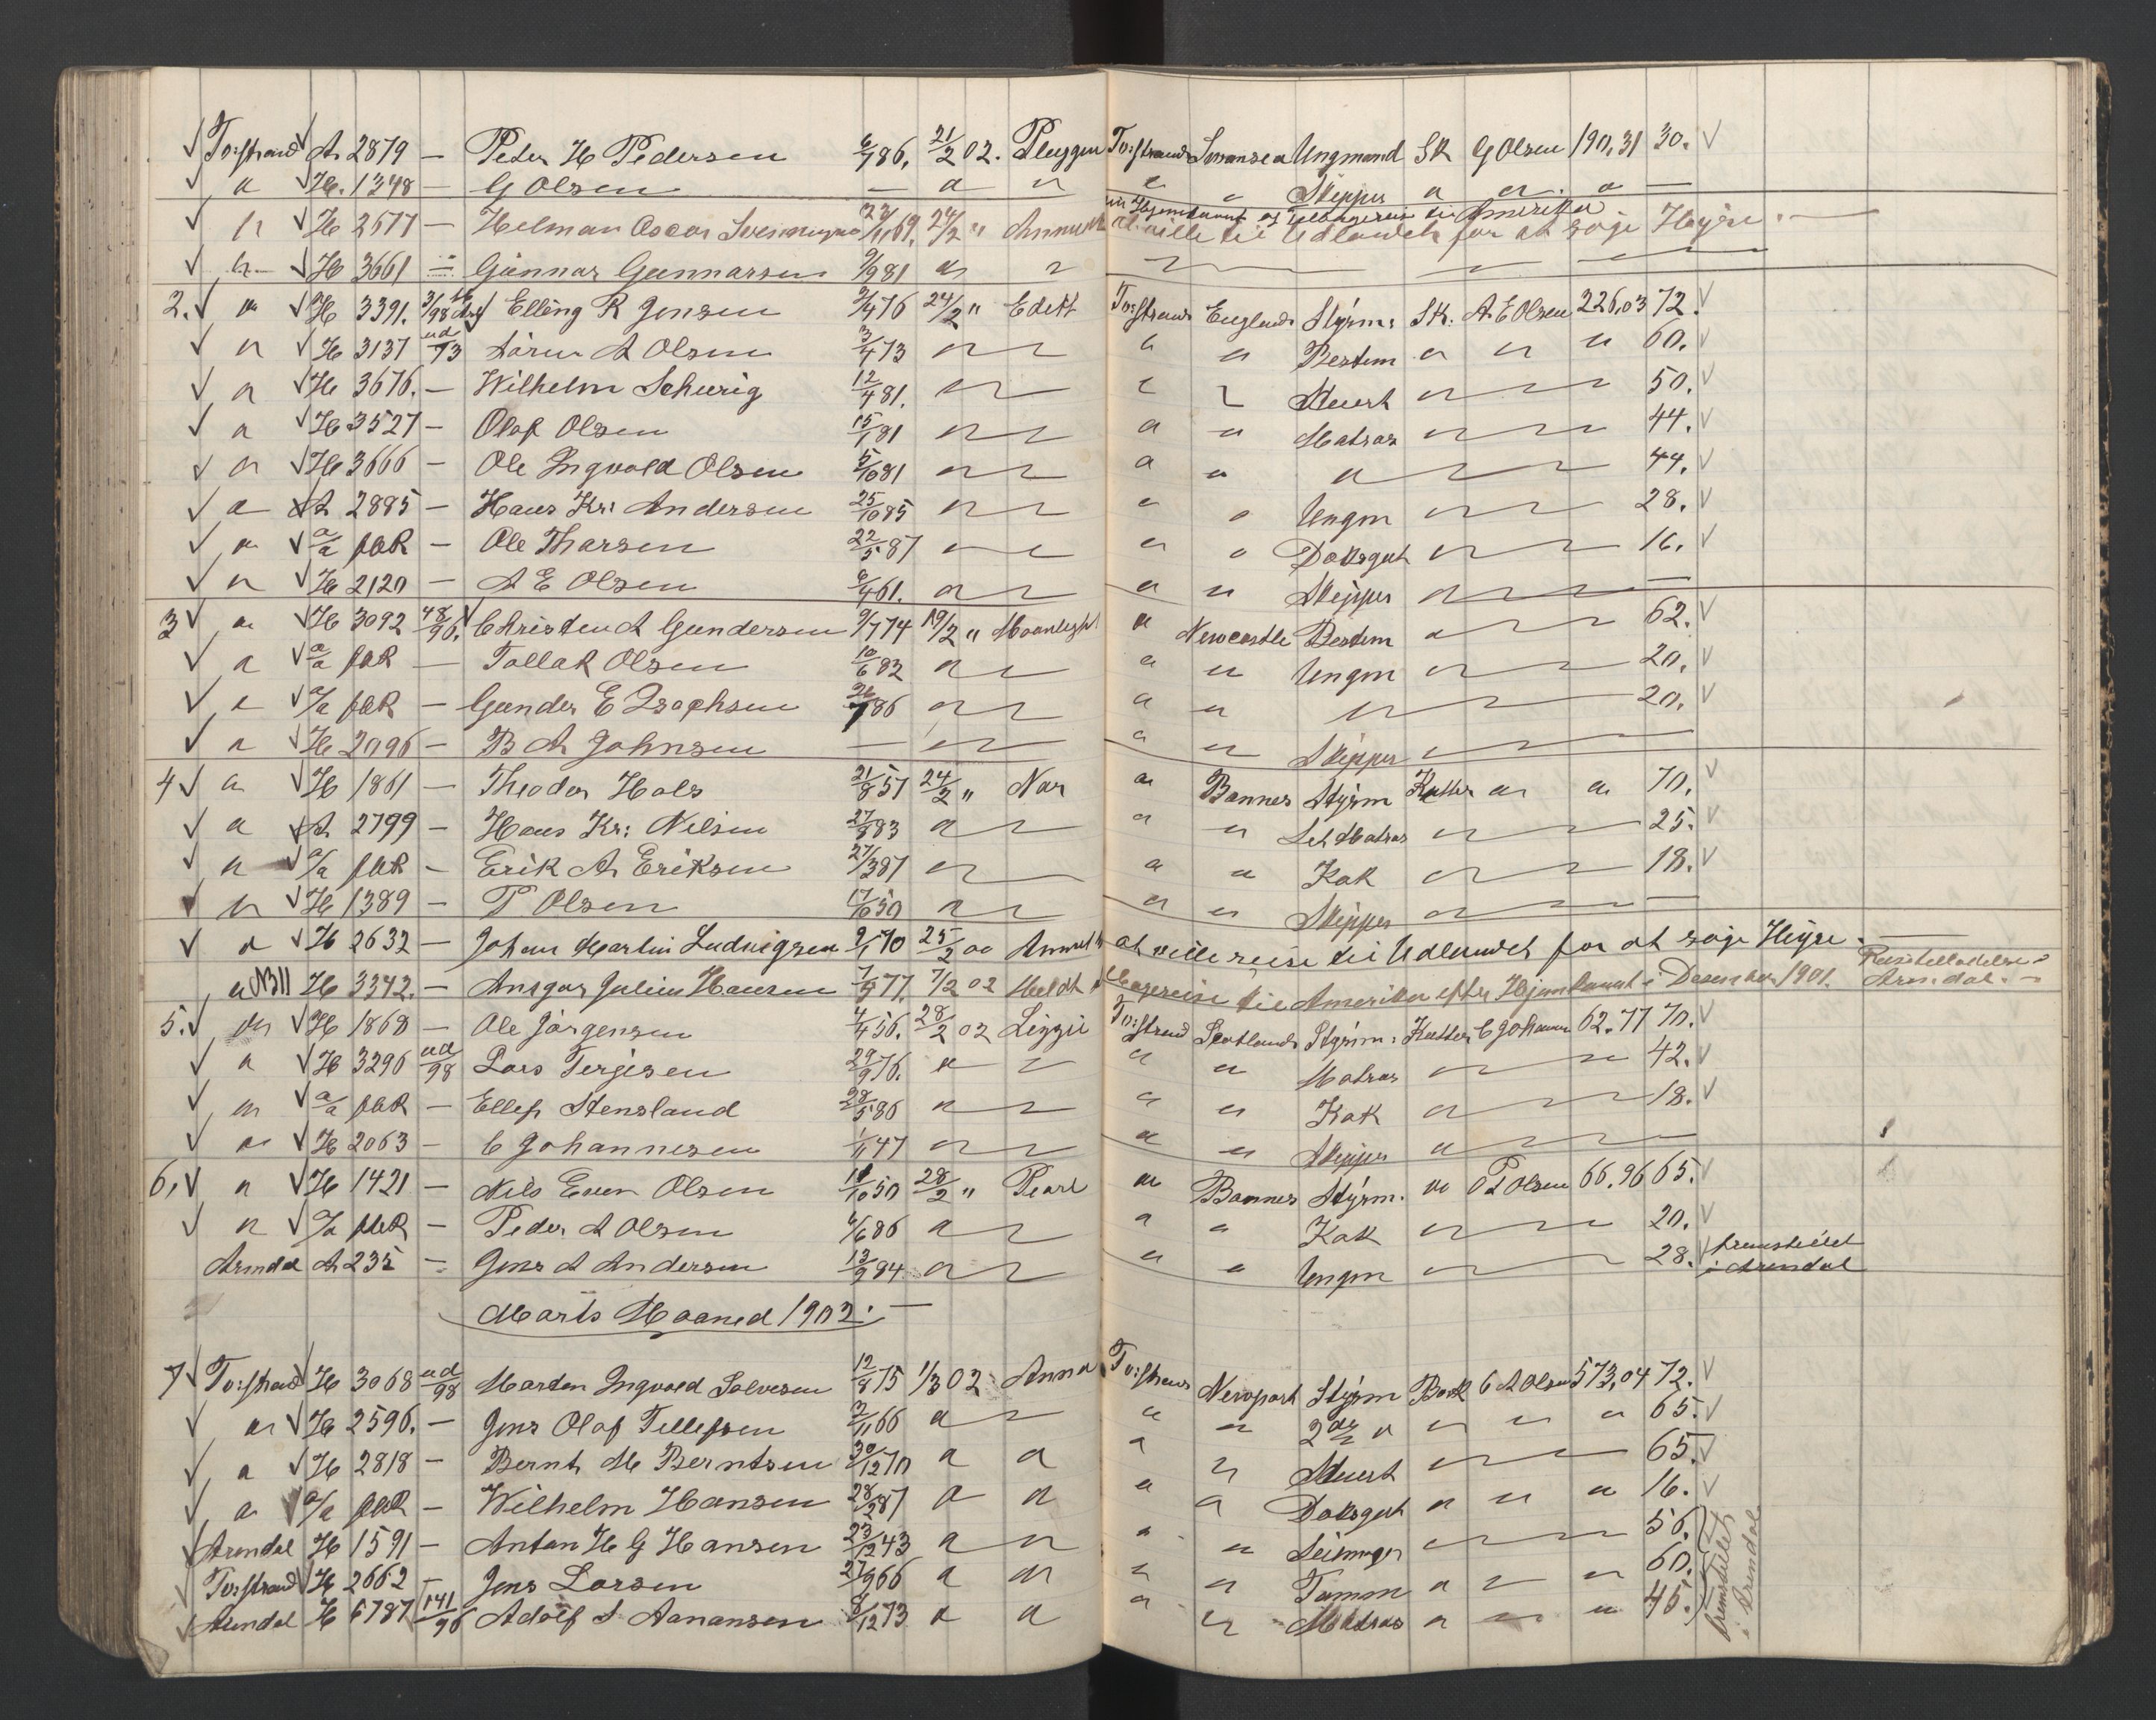 √ To:strand √ A 2879 — Peter H Pedersen 6/7 86. 21/2 02. Pluggen To:strand Swansea Ungmand Sk G Olsen 190,31 30. √
√ " √ H. 1348 — G Olsen — " " " " Skipper " " " —
√ " √ H 2677 — Helman Oscar 24/2 " Anmeldt at ville til Udlandet for at søge Hyre. —
√ " √ H 3661 — Gunnar Gunnarsen 9/9 81 " "
2. √ " √ H 3391. Elling R Jensen 24/2 " Edett To:strand England Styrm: Sk: A E Olsen 226,03 72. √
√ " √ H 3137 ud/93 Sören A Olsen 3/4 73 " " " " Bestm " " " 60. √
√ " √ H 3676. — Wilhelm Scheerig 12/4 81. " " " " Stuert " " " 50. √
√ " √ H 3527 — Olaf Olsen 15/1 81 " " " " Matros " " " 44. √
√ " √ H 3666 — Ole Ingvold Olsen 5/10 81 " " " " " " " " 44. √
√ " A 2885 — Hans Kr: Andersen 25/10 85 " " " " Ungm " " " 28. √
√ " √ a/a pak — Ole Tharsen 22/5 87 " " " " Doksgut " " " 16. √
√ " √ H 2120 — A E Olsen 6/4 61. " " " " Skipper " " " —
3 √ " √ H 3092 48/96. √ Christen A Gundersen 9/7 74 19/2 " Moonlight " Newcastle Bestm " " " 62. √
√ " √ a/a pak — Tallak Olsen 10/6 82 " " " " Ungm " " " 20. √
√ " √ a/a pak — Gunder E Isachsen 26/7 86 " " " " " " " " 20. √
√ " √ H 2096 — B A Johnsen — " " " " Skipper " " " —
4 √ " √ H 1861 — Theodor Hals 21/8 51 24/2 " Nor " Bonnes Styrm Kutter " " 70. √
√ " √ A 2799 — Hans Kr: Nilsen 27/8 83 " " " " Let Matros " " " 25. √
√ " √ a/a pak — Erik A Eriksen 27/3 87 " " " " Kok " " " 18. √
√ " √ H 1389 — P Olsen 17/6 50 " " " " Skipper " " " —
√ " √ H 2632 — Johan Martin Ludvigsen 9/1 70 25/2 02 Anmeldt at ville reise til Udlandet for at søge Hyre. —
" H 3342. — Ansgar Julius Hansen 77. 7/2 02 Meldt Udreise til Amerika efter Hjemkomst i December 1901. Reisetilladelse Arendal. —
5. √ " √ H 1868 — Ole Jörgensen 4/4 56. 28/2 02 Lizzie To:strand Scotland Styrm: Kutter C Johannesen 62.77 70. √
√ " √ H 3296 ud/98 Lars Terjesen 29/9 76. " " " " Matros " " " 42. √
√ " √ a/a pak — Ellef Stensland 28/5 86 " " " " Kok " " " 18. √
√ " √ H 2063 — C Johannesen 1/11 47 " " " " Skipper " " " —
6, √ " √ H 1421 — Nils Even Olsen 11/10 50 28/2 " Pearl " Bonnes Styrm. " P A Olsen 66.96 65. √
√ " √ a/a pak — Peder A Olsen 4/6 86 " " " " Kok " " " 20. √
Arendal A 235 — Jens A Andersen 13/9 84 " " " " Ungm " " " 28. √ fremstillet i Arendal
Marts Maaned 1902. —
7 √ To:strand √ H 3068 ud/98 Marten Ingvald Salvesen 12/8 75 1/3 02 Anna To:strand Newport Styrm Bark C A Olsen 573,04 72. √
√ " √ H 2596. — Jens Olaf Tellefsen 3/11 66 " " " " 2den " " " " 65. √
√ " √ H 2818 — Bernt M Berntsen 30/12 70 " " " " Stuert " " " 65. √
√ " √ a/a pak — Wilhelm Hansen 28/2 87 " " " " Doksgut " " " 16. √
√ Arendal H 1591 — Anton H G Hansen 23/12 43 " " " " Seilmager " " " 56.
√ To:strand √ H 2662 — Jens Larsen 27/9 66 " " " " Tømm " " " 60. fremstillet i Arendal
√ Arendal H 6787 141/96 Adolf S. Aanansen 8/12 73 " " " " Matros " " " 45.